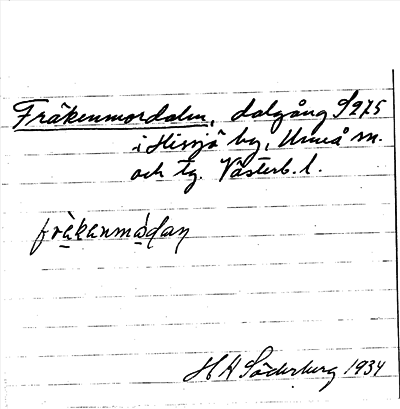 Fräkenmordalen, dalgång S 275
i Hissjö by, Umeå sn.
och tg. Västerb. l.
fräkanmodan
H A Söderberg 1934